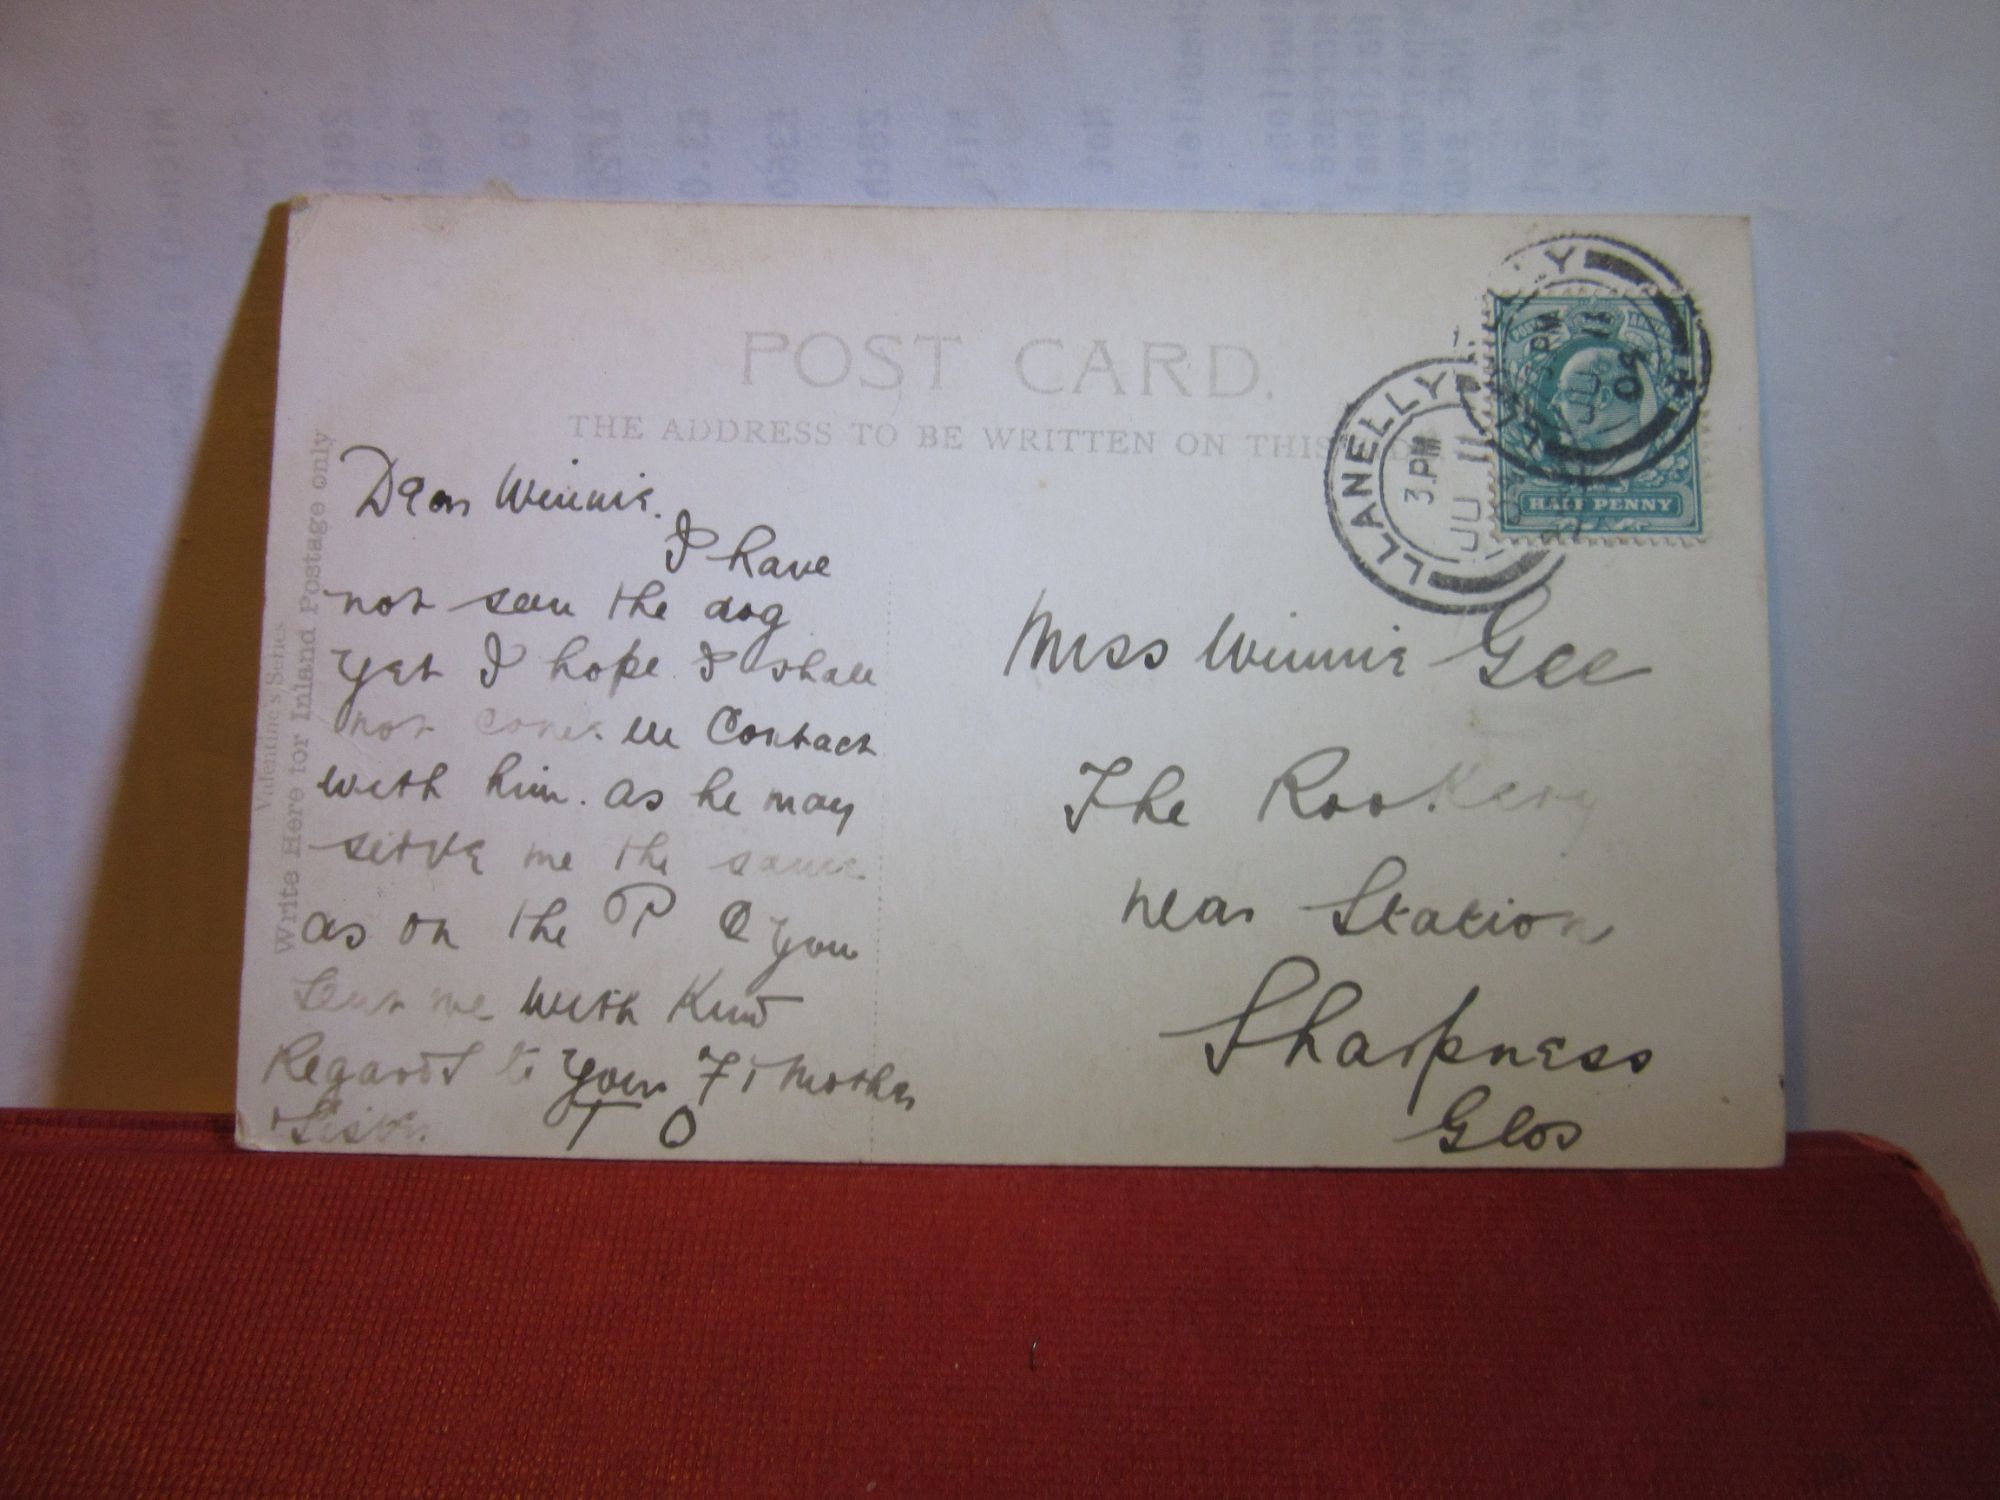 POST CARD.
THE ADDRESS TO BE WRITTEN ON THIS
Valentine's Series
Write Here for Inland Postage only
LLANELLY
3.PM
JU 11
LLY
3.PM
JU 11
04
HALF PENNY
Dear Winnie.
I have
not seen the dog
yet I hope I shall
not come in contact
with him. as he may
serve me the same
as on the P C you
sent me with Kind
Regards to your F & Mother
Sister. T O
Miss Winnie Gee
The Rookery
near Station
Sharpness
Glos